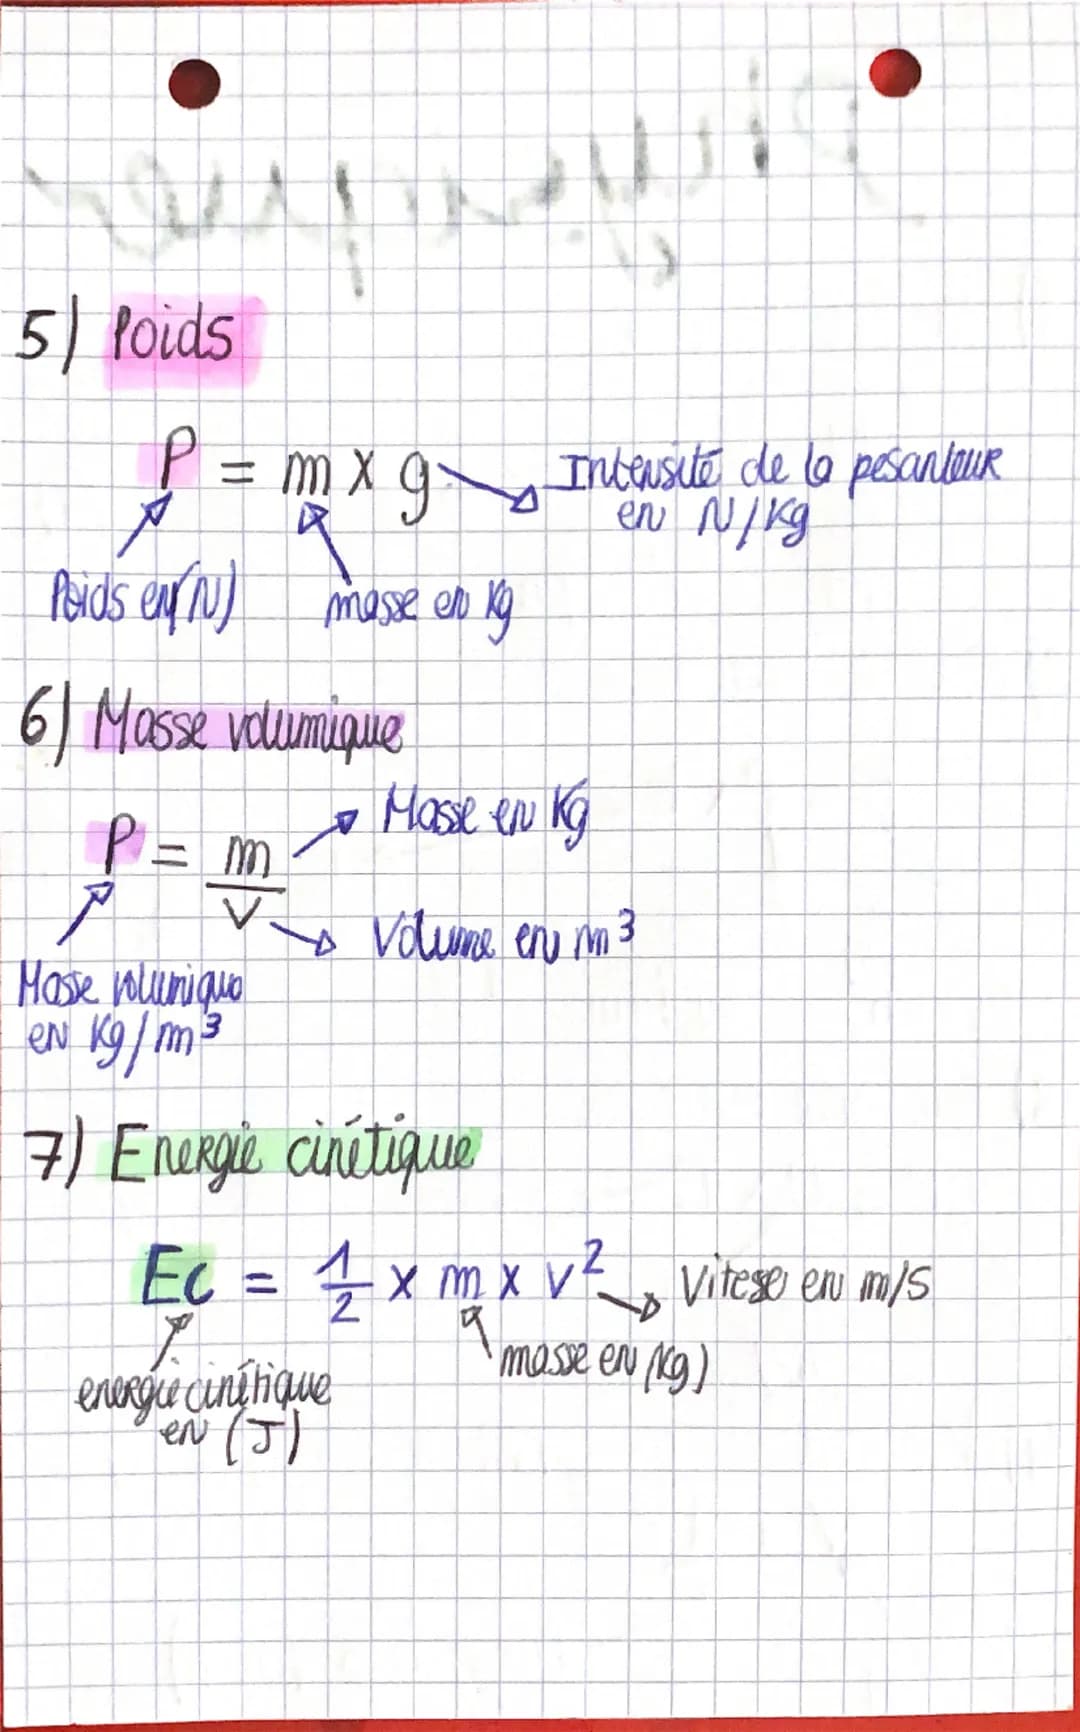 5) Poids
P = m x g
Intensité de la pesanteur
en N/Kg
Poids en (N)
masse en Kg
6) Masse volumique
P = m
V
Masse en Kg
Volume en m³
Masse volumique
en Kg/m³
7) Energie cinétique
Ec = 1/2 x m x v²
Vitese en m/s
masse en (Kg)
energie cinétique
en (J)